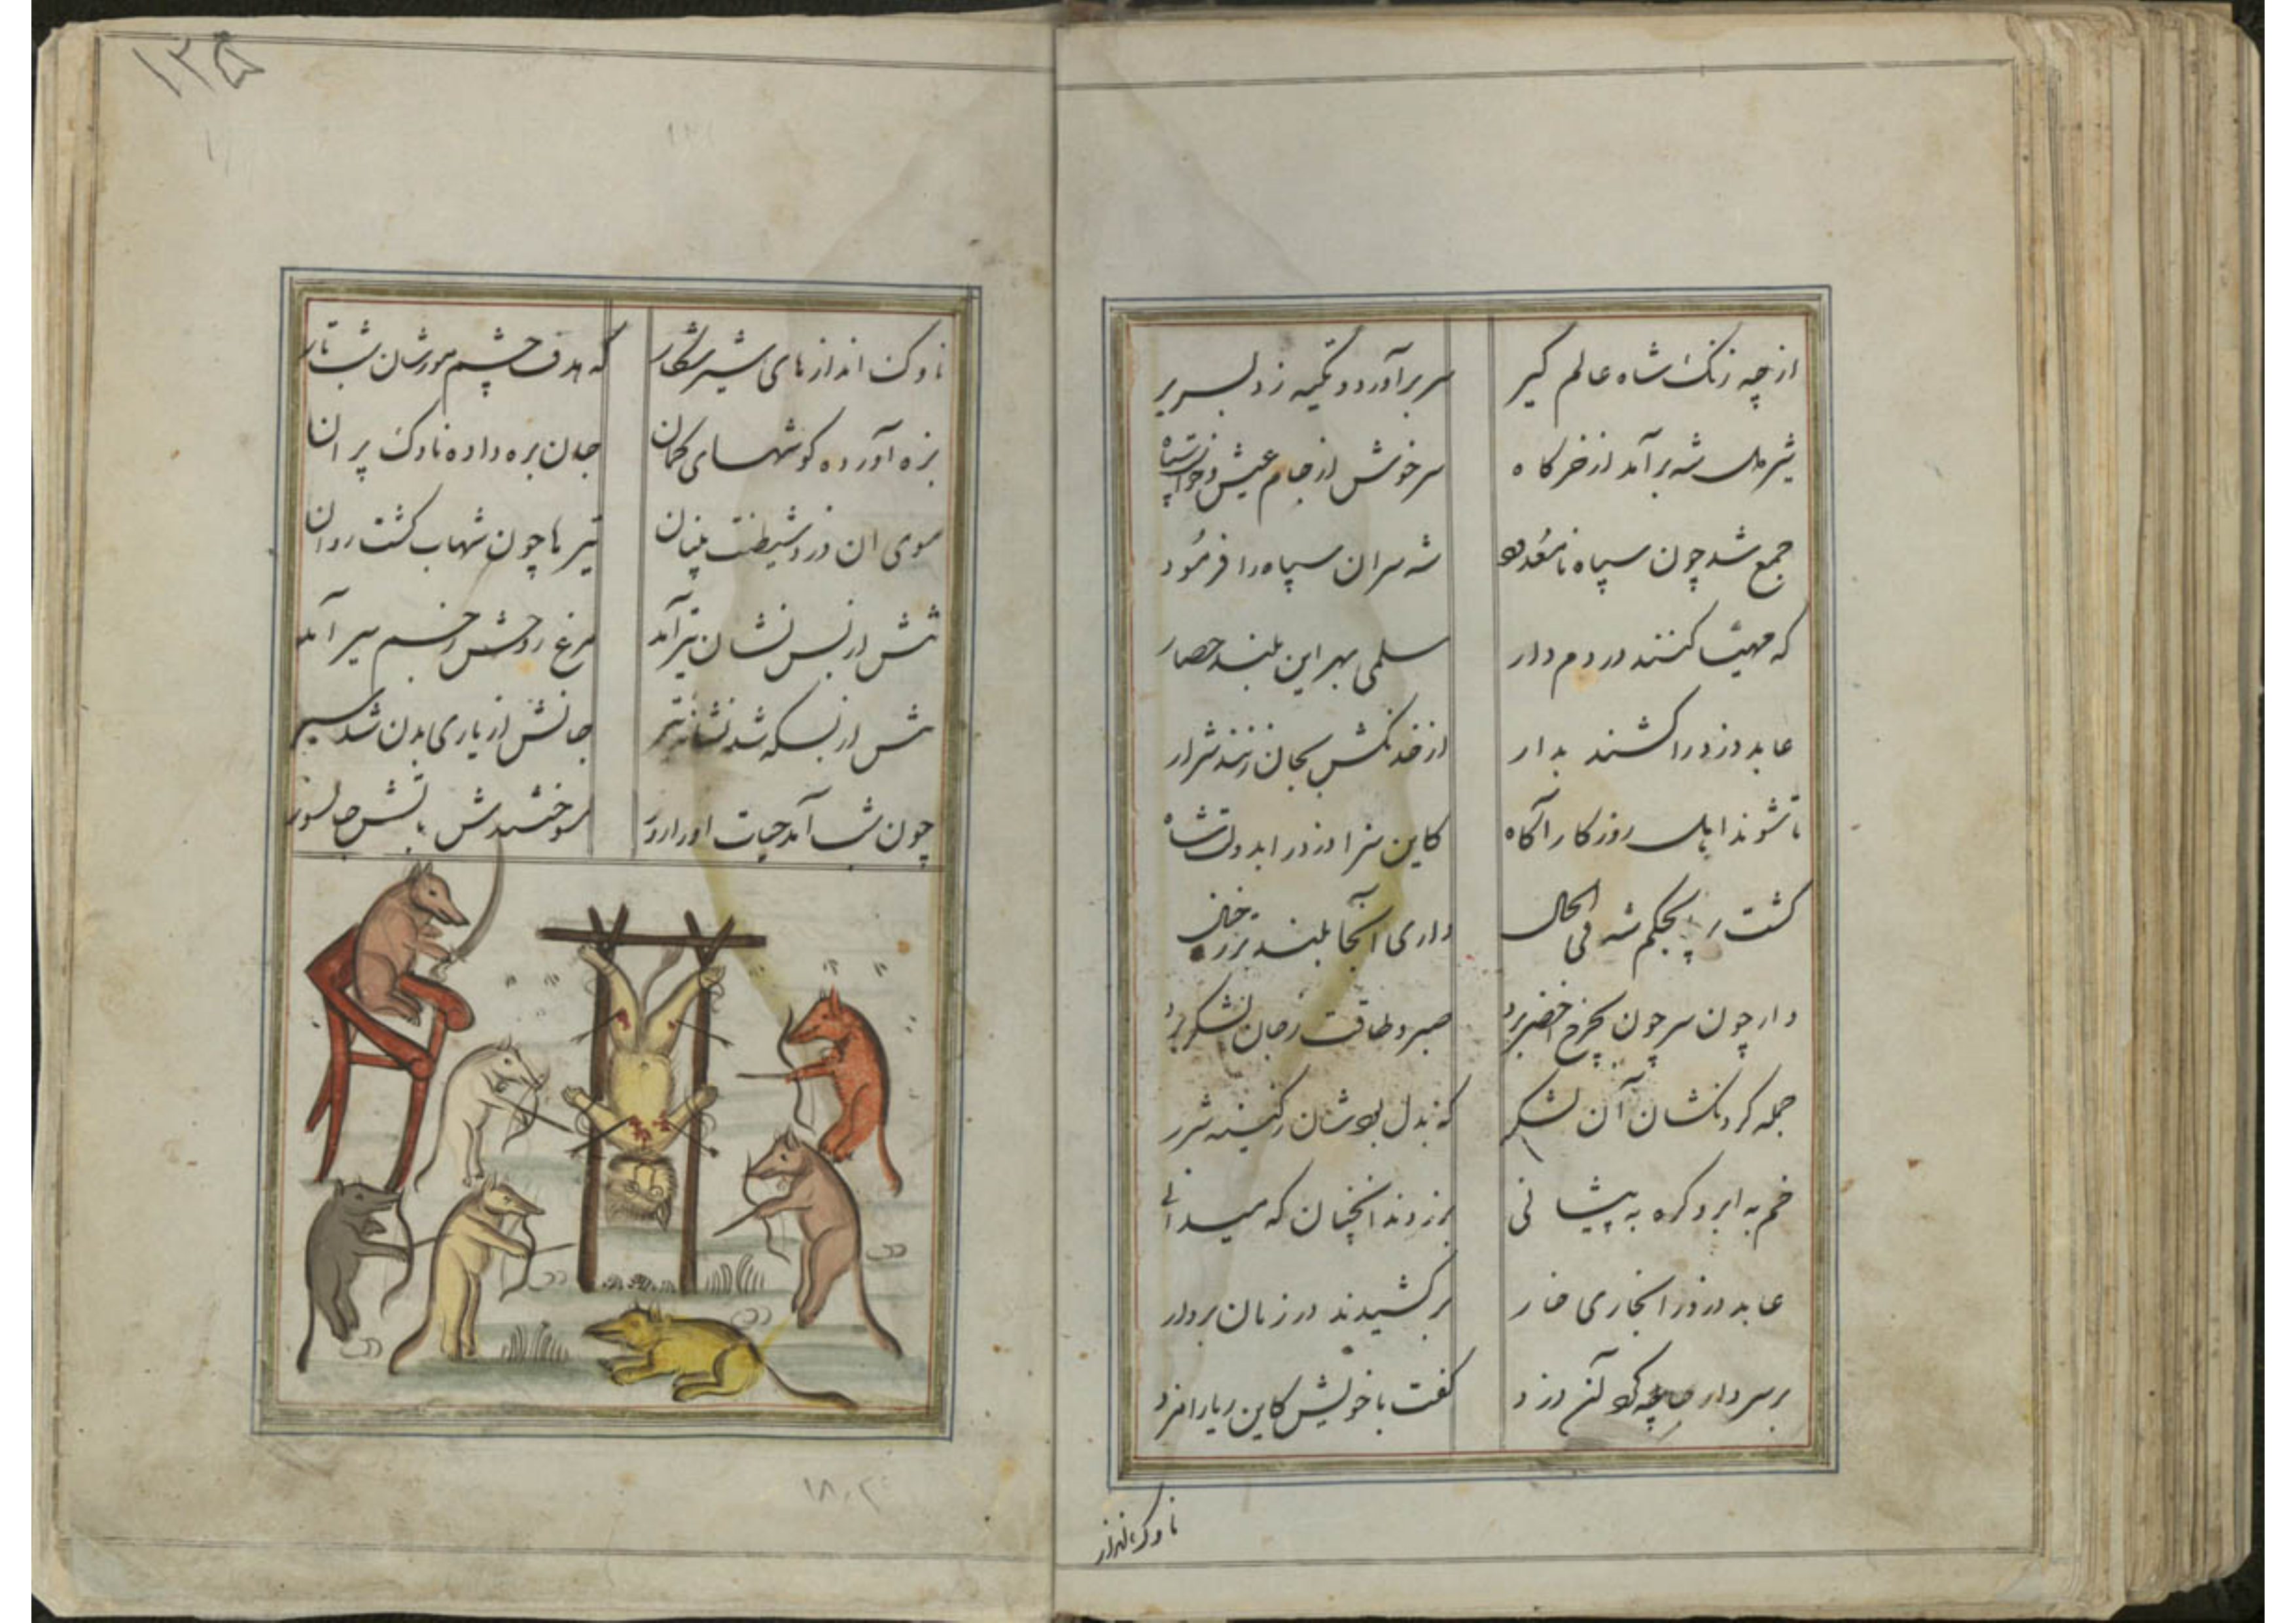 ازچه زنک شاه عالم کیر
سر برآورد و تکیه زد بسریر
شیردل شه برآمد از خرکاه
سرخوش از جام عیش
جمع شد چون سپاه نامعدود
شه سران سپاه را فرمود
که مهیا کنند در دم دار
سلمی بهر این بلند حصار
عابد دزد را کشند بدار
از خدنکش بجان زنند شرار
تا شوند اهل روزکار آکاه
کاین سزا دزد را بدولت شاه
کشت بحکم شه فی الحال
داری آنجا بلند
دار چون سر چون بچرخ خضر برد
صبر و طاقت زجان لشکر برد
جمله کردنکشان آن لشکر
که بدل بودشان زکینه شرر
خم به ابرو کره به پیشانی
بر زدند انچنان که میدانی
عابد دزد را بخاری خار
بر کشیدند در زمان بر دار
بر سر دار آن دزد
کفت با خویش کاین ریا را مزد
ناوک انداز
۱۲۵
ناوک اندازهای شیر شکار
که هدف چشم مورشان شب تار
بزه آورده کوشهای کمان
جان بره داده ناوک پران
سوی ان دزد شیطنت بنیان
تیرها چون شهاب کشت روان
تنش از بس نشان تیر آمد
مرغ روحش زجسم سیر آمد
تنش از بسکه شد نشانه تیر
جانش از یاری بدن شد سیر
چون شب آمد حیات او را روز
سوختندش باتش جانسوز